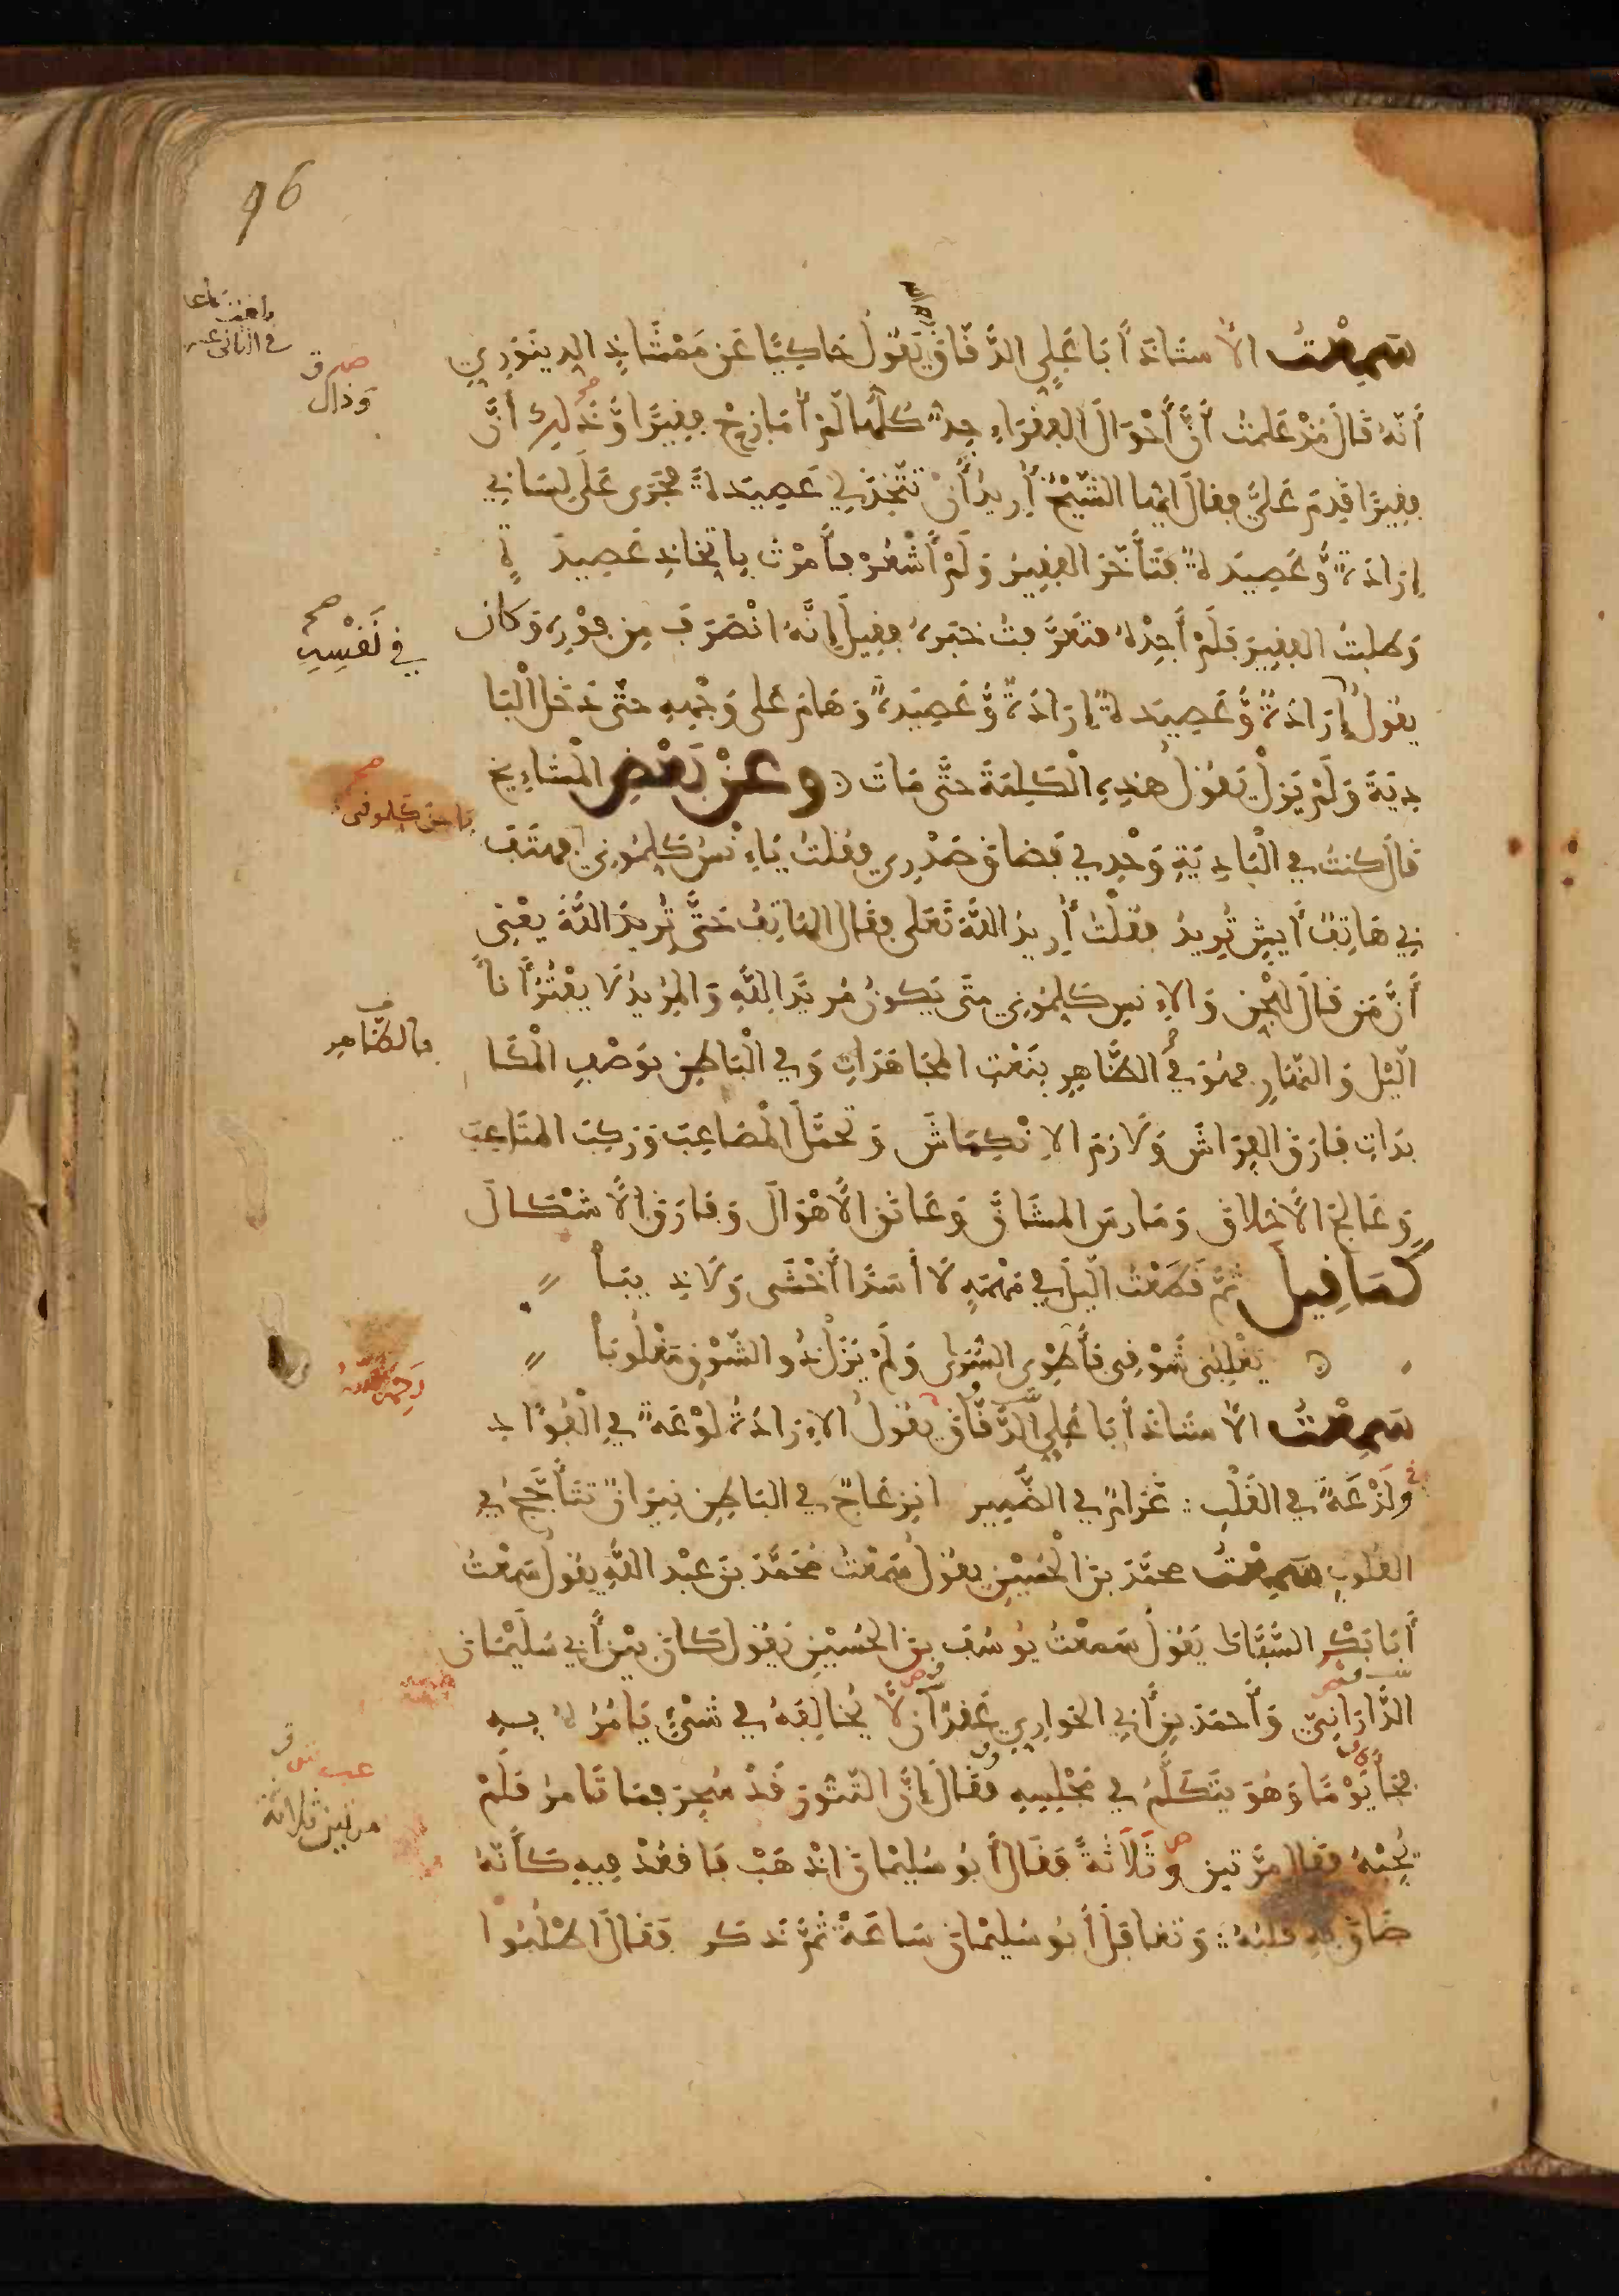 96
سَمِعْتُ الأُستَاذَ أَبَا عَلِي الدَّقَّاقَ يَقُولُ حَاكِيًا عَن مَمْشَاذِ الدِينَوَرِي
أَنّهُ قَالَ مُذْ عَلِمتُ أَنَّ أَحْوَالَ الفُقَرَاءِ جِدٌّ كُلُّهَا لَمْ أُمَازِحْ فَقِيرًا وَّذَلِكَ أَنَّ
فَقِيرًا قَدِمَ عَلَيَّ فَقَالَ أَيُّهَا الشَّيْخُ أُرِيدُ أَنْ تَتَّخِذَ لِي عَصِيدَةً فَجَرَى عَلَى لِسَانِي
إِرَادَةٌ وَّعَصِيدَةٌ فَتَأَخَّرَ الفَقِيرُ وَلَمْ أَشْعُرْ فَأَمَرْتُ بِاتِّخَاذِ عَصِيدَةٍ
وَطَلَبتُ الفَقِيرَ فَلَمْ أَجِدْهُ فَتَعَرَّفتُ خَبَرَهُ فَقِيلَ إِنَّهُ انْصَرَفَ مِن فَوْرِهِ وَكَانَ
يَقُولُ إِرَادَةٌ وَّعَصِيدَةٌ إِرَادَةٌ وَّعَصِيدَةٌ وَهَامَ عَلى وَجْهِهِ حَتَّى دَخَلَ الْبَا
دِيَةَ وَلَمْ يَزَلْ يَقُولُ هَذِهِ الْكَلِمَةَ حَتَّى مَاتَ وعَنْ بَعْضِ الْمَشَايِخِ
قَالَ كُنتُ فِي الْبَادِيَةِ وَحْدِي فَضَاقَ صَدْرِي فَقُلتُ يَا إِنْسُ كَلِّمُونِي فَهَتَفَ
بِي هَاتِفٌ أَيشٍ تُرِيدُ فَقُلْتُ أُرِيدُ اللَّهَ تَعَلى فَقَالَ الهَاتِفُ حَتَّى تُرِيدُ اللَّهَ يَعْنِي
أَنَّ مَن قَالَ لِلْجِنِ وَالإِنسِ كَلِّمُونِي مَتَى يَكُونُ مُرِيدًا لِلَّهِ وَالمُرِيدُ لَا يَفْتُرُ أَناَءَ
الَّيْلِ وَالنَّهَارِ فَهُوَ فِي الظَّاهِرِ بِنَعْتِ المُجَاهَدَاتِ وَفِي الْبَاطِنِ بِوَصْفِ الْمُكَا
بَدَاتِ فَارَقَ الفِرَاشَ وَلَازَمَ الاِنْكِمَاشَ وَتَحَمَّلَ الْمَصَاعِبَ وَرَكِبَ المَتَاعِبَ
وَعَالَجَ الأَخْلَاقَ وَمَارَسَ المَشَاقَّ وَعَانَقَ الأَهْوَالَ وَفَارَقَ الأَشْكَالَ
كَمَا قِيلَ ثُمَّ قَطَعْتُ الَّيلَ فِي مَهْمَهٍ لَا أَسَدًا أَخْشَى وَلَا ذِيبَا
يَغْلِبُنِي شَوْقِي فَأَطْوِي السُّرَى وَلَمْ يَزَلْ ذُو الشَّوْقِ مَغْلُوبَا
سَمِعْتُ الأُستَاذَ أَبَا عَلِي الدَّقَّاقَ يَقُولُ الإِرَادَةُ لَوْعَةٌ فِي الْفُؤَادِ
وَلَذْعَةٌ فِي القَلْبِ غَرَامٌ فِي الضَّمِيرِ انزِعَاجٌ فِي البَاطِنِ نِيرَانٌ تَتَأَجَّجُ فِي
القُلُوبِ سَمِعْتُ محمَّدَ بنَ الْحُسَيْنِ يَقُولُ سَمِعْتُ مُحَمَّدَ بنَ عَبْدِ اللَّهِ يَقُولُ سَمِعْتُ
أَبَا بَكْرٍ السَّبَّاكَ يَقُولُ سَمِعْتُ يُوسُفَ بنَ الحُسَيْنِ يَقُولُ كَانَ بَيْنَ أَبِي سُلَيْمَانَ
الدَّارَانِيِّ وَأَحمَدَ بنِ أَبِي الحَوَارِي عَقدٌ أَن لَّا يُخَالِفَهُ فِي شَيْءٍ يَأمُرُهُ بِهِ
فَجَاءَ يَوْمًا وَهُوَ يَتَكَلَّمُ فِي مَجْلِسِهِ فَقَالَ إِنَّ التَّنُّورَ قَدْ سُجِرَ فَمَا تَأمُرُ فَلَمْ
يُجِبْهُ فَقَالَ مَرَّتَينِ وثَلَاثَةً فَقَالَ أَبُو سُلَيْمَانَ اذْهَبْ فَاقعُدْ فِيهِ كَأَنَّهُ
ضَاقَ بِهِ قَلبُهُ وَتَغَافَلَ أَبُو سُلَيْمَانَ سَاعَةً ثُمَّ تَذَكَّرَ فَقَالَ اطْلُبُوا
وَذَاكَ
صح
فِي نَفْسِهِ
صح
يَا جن كَلِمُونِي
فالظَّاهِرِ
رَحِمَهُ اللَّهُ
مرتين ثلاثة